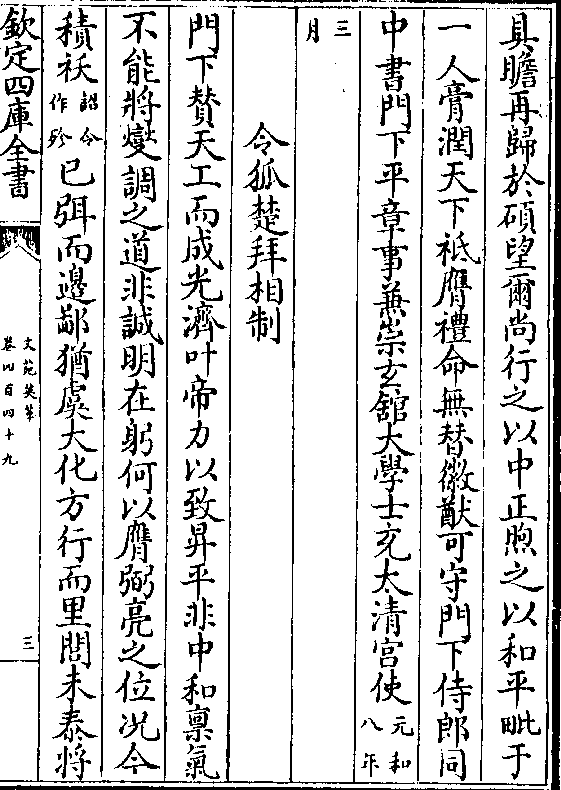 具瞻再歸於碩望爾尚行之以中正煦之以和平毗于
一人膏潤天下祗膺禮命無替徽猷可守門下侍郎同
中書門下平章事兼崇玄舘大學士充太清宮使元和八年
三月
令狐楚拜相制
門下賛天工而成光濟叶帝力以致昇平非中和禀氣
不能將燮調之道非誠明在躬何以膺弼亮之位况今
積祅詔令作殄已弭而邊鄙猶虞大化方行而里閭未泰將
欽定四庫全書
文苑英華
卷四百四十九
三